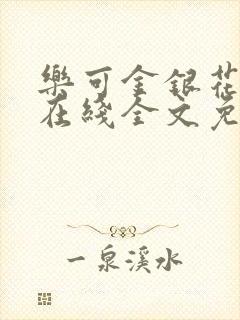 樂可金銀花
在綫全文免
一泉溪水